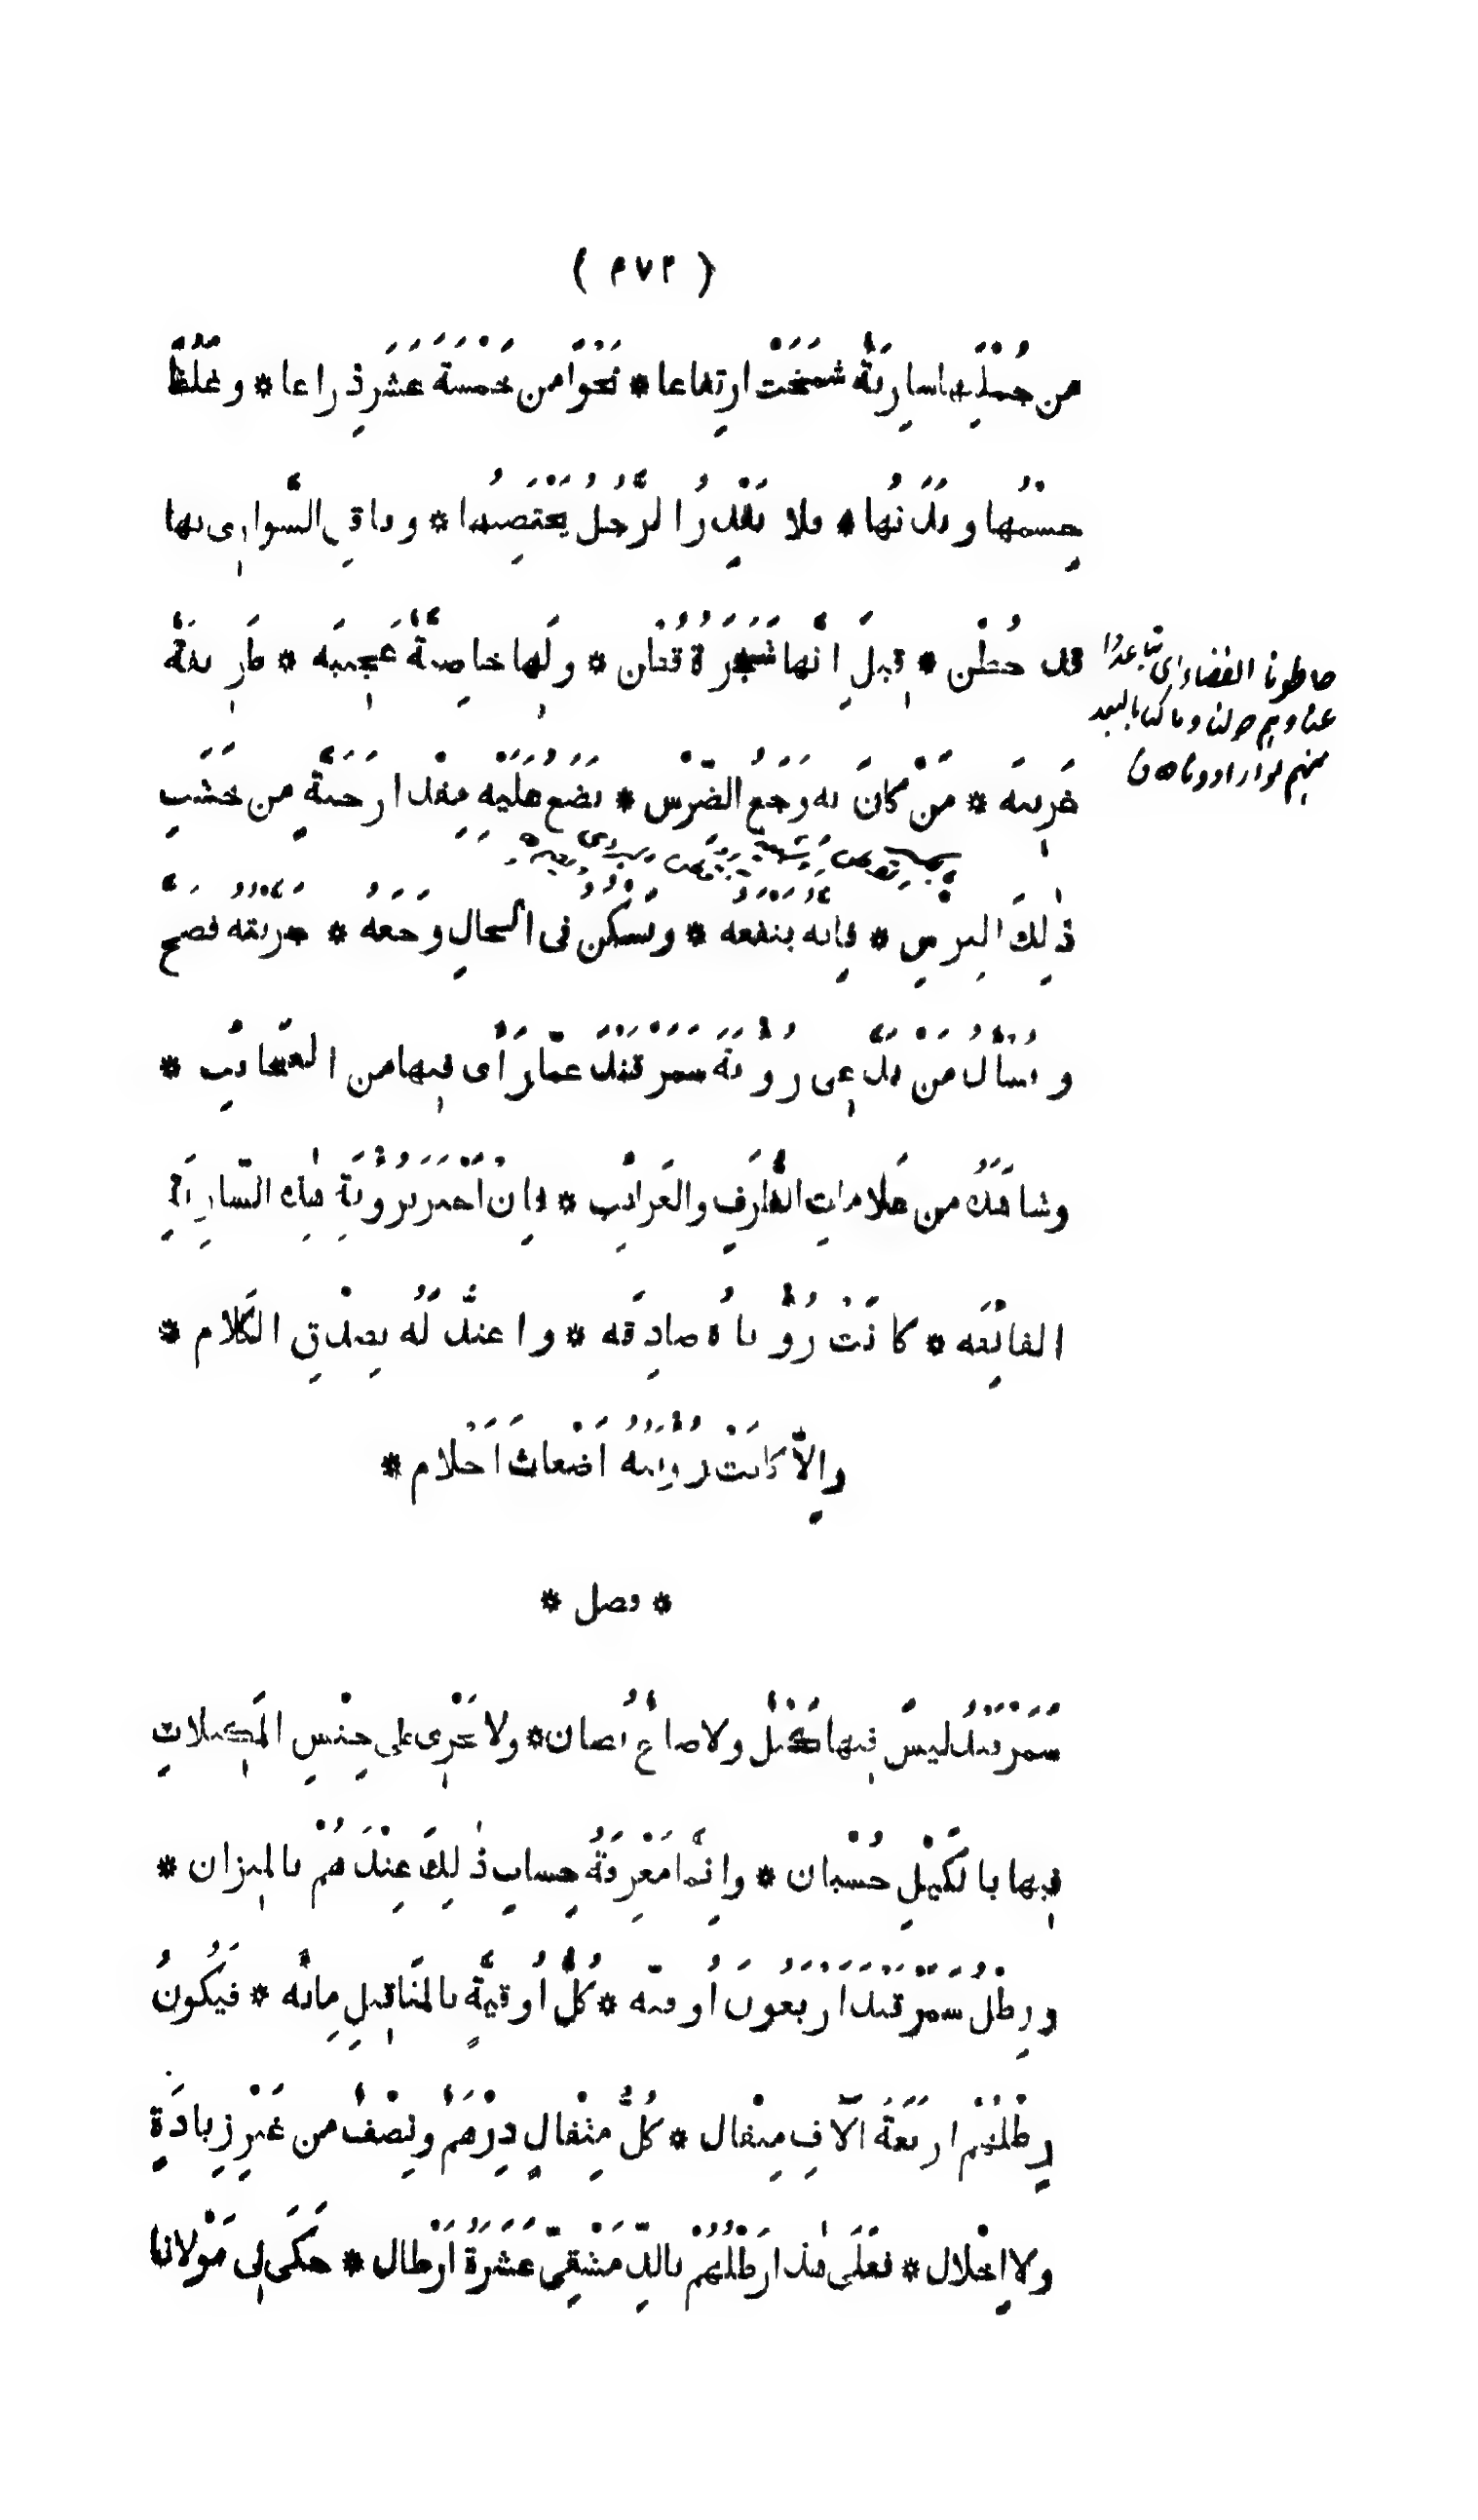 ( ٤٧٢ )
من جُمْلَتِها سارِيَةٌ شَمَخَتْ ارتِفاعا * نَحْوًا من خَمْسَةَ عَشَرَ ذِراعا * و غَلُظَ
جِسْمُها و بَدَنُها * فلا يَقْدِرُ الرَّجُلُ يَحْتَضِنُها * و باقي السَّوارِي بها
قد حُطْن * قِيلَ اِنَّها شَجَرَةُ قُطن * ولَها خاصِيَّةٌ عَجِيبَه * طَرِيفَةٌ
غَرِيبَه * مَنْ كانَ به وَجَعُ الضِّرْسِ * يَضَعُ عَلَيْهِ مِقْدارَ حَبَّةٍ من خَشَبِ
ذٰلِكَ البِرْسِ * فاِنَّهُ يَنْفَعُه * و يَسْكُنُ في الحالِ وَجَعُهُ *
و يُسْأَلُ مَنْ يَدَّعِي رُؤْيَةَ سَمَرْقَنْدَ عمّا رَأَى فيها من العَجائِب *
وشاهَدَ من عَلاماتِ الطُّرَفِ والغَرائِب * فاِنْ اَخْبَرَ بِرُؤْيَةِ هٰذِهِ السّارِيَةِ
الفائِقَه * كانَتْ رُؤْياهُ صادِقَه * و اعتُدَّ لَهُ بِصِدْقِ الكَلام *
واِلّا كانَتْ رُؤْيَتُهُ اَضْغاثَ اَحْلام *
* فصل *
سَمَرْقَنْدُ ليسَ فيها كَيْلٌ ولا صاعٌ يُصان * ولا يَجْرِي على جِنْسِ المَكِيلاتِ
فيها بالكَيْلِ حُسْبان * واِنَّما مَعْرِفَةُ حِسابِ ذٰلِكَ عِنْدَهُمْ بالمِيزان *
و رِطْلُ سَمَرْقَنْدَ اَرْبَعُونَ اُوقيّه * كُلُّ اُوقِيَّةٍ بالمَثاقِيلِ مِائَه * فَيَكُونُ
رِطْلُهُمْ اَرْبَعَةَ آلافِ مِثْقال * كُلُّ مِثْقالٍ دِرْهَمٌ ونِصْفٌ من غَيْرِ زِيادَةٍ
ولا اِخْلال * فعَلَى هٰذا رَطْلُهُمْ بالدِّمَشْقِيِّ عَشَرَةُ اَرْطال * حَكَى لي مَوْلانا